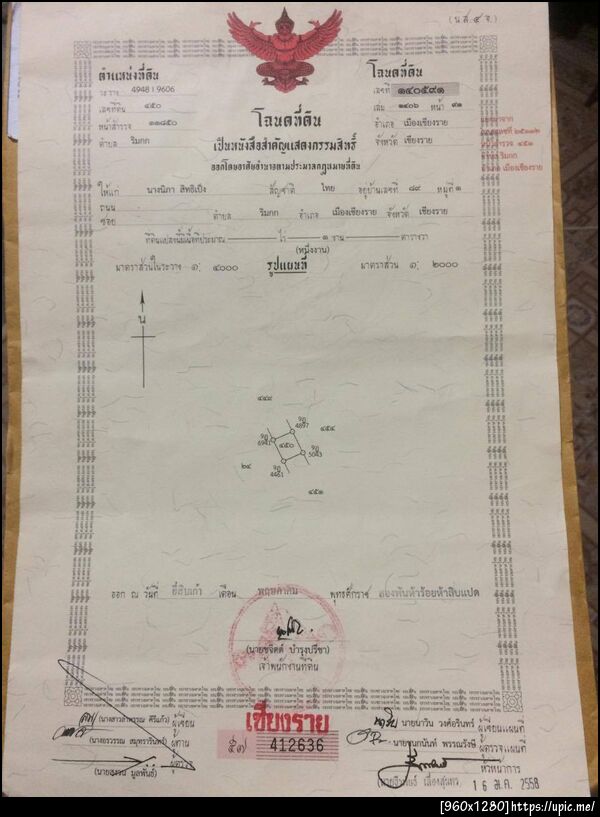 (น.ส.๔ จ.)
ตำแหน่งที่ดิน
ระวาง 4948 I 9606
เลขที่ดิน ๔๕๐
หน้าสำรวจ ๑๑๘๕๐
ตำบล ริมกก
โฉนดที่ดิน
เลขที่ ๑๔๐๕๙๑
เล่ม ๑๔๐๖ หน้า ๙๑
อำเภอ เมืองเชียงราย
จังหวัด เชียงราย
หน้าสำรวจ ๔๕๑
ตำบล ริมกก
อำเภอ เมืองเชียงราย
โฉนดที่ดิน
เป็นหนังสือสำคัญแสดงกรรมสิทธิ์
ออกโดยอาศัยอำนาจตามประมวลกฎหมายที่ดิน
ให้แก่ นางนิภา สิทธิเป็ง สัญชาติ ไทย อยู่บ้านเลขที่ ๘๙ หมู่ที่ ๑
ถนน
ซอย ตำบล ริมกก อำเภอ เมืองเชียงราย จังหวัด เชียงราย
ที่ดินแปลงนี้มีเนื้อที่ประมาณ ไร่ ๑ งาน ตารางวา
(หนึ่งงาน)
มาตราส่วนในระวาง ๑: ๔๐๐๐ รูปแผนที่ มาตราส่วน ๑: ๒๐๐๐
น
๔๔๙
4897
๔๕๔
6941
๔๕๐
5043
๒๔
4461
๔๕๑
ออก ณ วันที่ ยี่สิบเก้า เดือน พฤษภาคม พุทธศักราช สองพันห้าร้อยห้าสิบแปด
(นายชจิตต์ บำรุงปรีชา)
เจ้าพนักงานที่ดิน
ผู้เขียน
ผู้ทาน
ผู้ตรวจ
เชียงราย
412636
นายนาวิน วงศ์อรินทร์ ผู้เขียนแผนที่
นายชนกนันท์ พรรณรังษี ผู้ตรวจแผนที่
หัวหน้าการ
2558
[960x1280]https://upic.me/